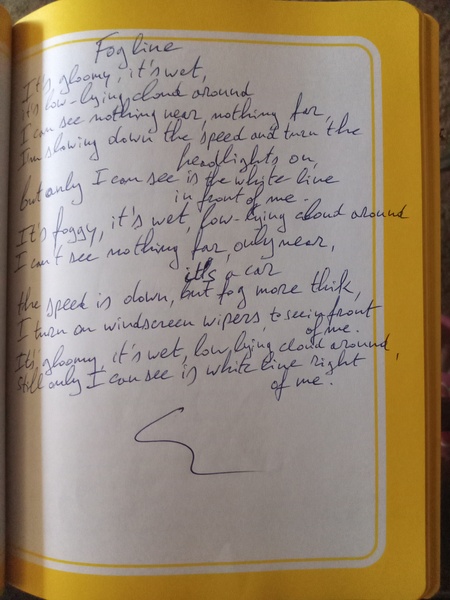 Fog line
It's gloomy, it's wet,
it's low-lying cloud around
I can see nothing near, nothing far,
I'm slowing down the speed and turn the
headlights on,
but only I can see is the white line
in front of me.
It's foggy, it's wet, low-lying cloud around
I can't see nothing far, only near,
it's a car
the speed is down, but fog more thik,
I turn on windscreen wipers, to see in front
of me.
It's gloomy, it's wet, low, lying cloud around,
still only I can see is white line right
of me.